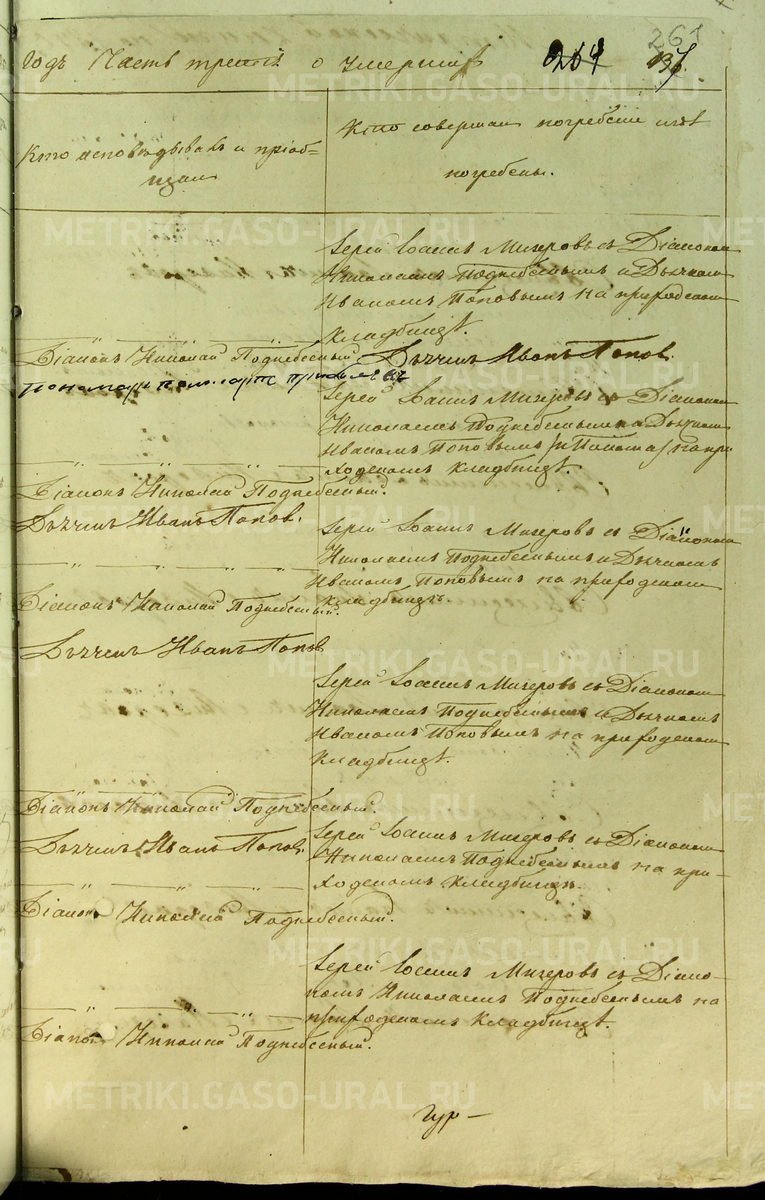 261
Годъ Часть третія о умершихъ 264 137
Кто исповѣдывалъ и пріоб-
щалъ
Кто совершалъ погребеніе и гдѣ
погребены.
Іерей Іоаннъ Мизеровъ съ Діакономъ
Николаемъ Поднебеснымъ и Дьячкомъ
Иваномъ Поповымъ на приходскомъ
кладбищѣ.
Діаконъ Николай Поднебесный Дьячекъ Иванъ Попов.
Іерей Іоаннъ Мизеровъ съ Діакономъ
Николаемъ Поднебеснымъ и Дьячкомъ
Иваномъ Поповымъ на при
ходскомъ кладбищѣ.
Діаконъ Николай Поднебесный.
Дьячекъ Иванъ Попов.
Іерей Іоаннъ Мизеровъ съ Діакономъ
Николаемъ Поднебеснымъ и Дьячкомъ
Иваномъ Поповымъ на приходскомъ
кладбищѣ.
Діаконъ Николай Поднебесный.
Дьячекъ Иванъ Попов
Іерей Іоаннъ Мизеровъ съ Діакономъ
Николаемъ Поднебеснымъ и Дьячкомъ
Иваномъ Поповымъ на приходскомъ
кладбищѣ.
Діаконъ Николай Поднебесный.
Дьячекъ Иванъ Попов.
Іерей Іоаннъ Мизеровъ съ Діакономъ
Николаемъ Поднебеснымъ на при-
ходскомъ кладбищѣ.
Діаконъ Николай Поднебесный.
Іерей Іоаннъ Мизеровъ съ Діако-
номъ Николаемъ Поднебеснымъ на
приходскомъ кладбищѣ.
Діаконъ Николай Поднебесный.
Гур-
METRIKI.GASO-URAL.RU